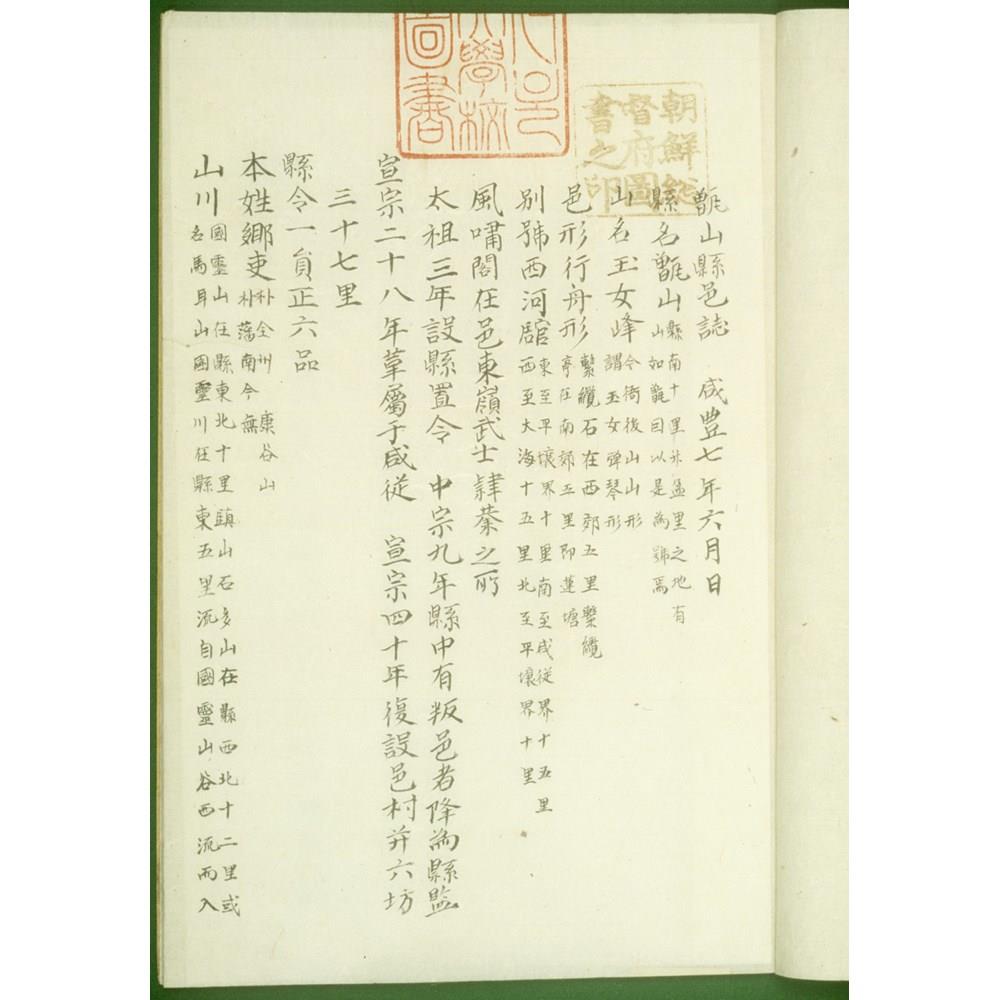 甑山縣邑誌 咸豊七年六月日
縣名甑山 縣南十里外盃里之地有
山如甑因以是為號焉
山名玉女峰 今衙後山山形
謂玉女弾琴形
邑形行舟形 繫纜石在西郊五里繫纜
亭在南郊五里即蓮塘
別號西河館 東至平壤界十里南至咸從界十五里
西至大海十五里北至平壤界十里
風嘯閣在邑東嶺武士肄藝之所
太祖三年設縣置令 中宗九年縣中有叛邑者降為縣監
宣宗二十八年革屬于咸從 宣宗四十年復設邑村并六坊
三十七里
縣令一員正六品
本姓鄉吏 朴 全州 康 谷山
朴 藩南 今無
山川 國靈山在縣東北十里鎮山石多山在縣西北十二里或
名馬耳山國靈川在縣東五里流自國靈山谷西流而入
朝鮮総
督府圖
書之印
學校
圖書